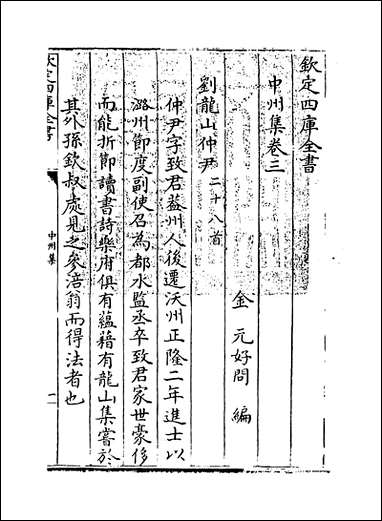 欽定四庫全書
中州集卷三
金 元好問 編
劉龍山仲尹二十八首
仲尹字致君葢州人後遷沃州正隆二年進士以
潞州節度副使召為都水監丞卒致君家世豪侈
而能折節讀書詩樂府俱有蘊藉有龍山集嘗於
其外孫欽叔處見之參涪翁而得法者也
欽定四庫全書
中州集
一